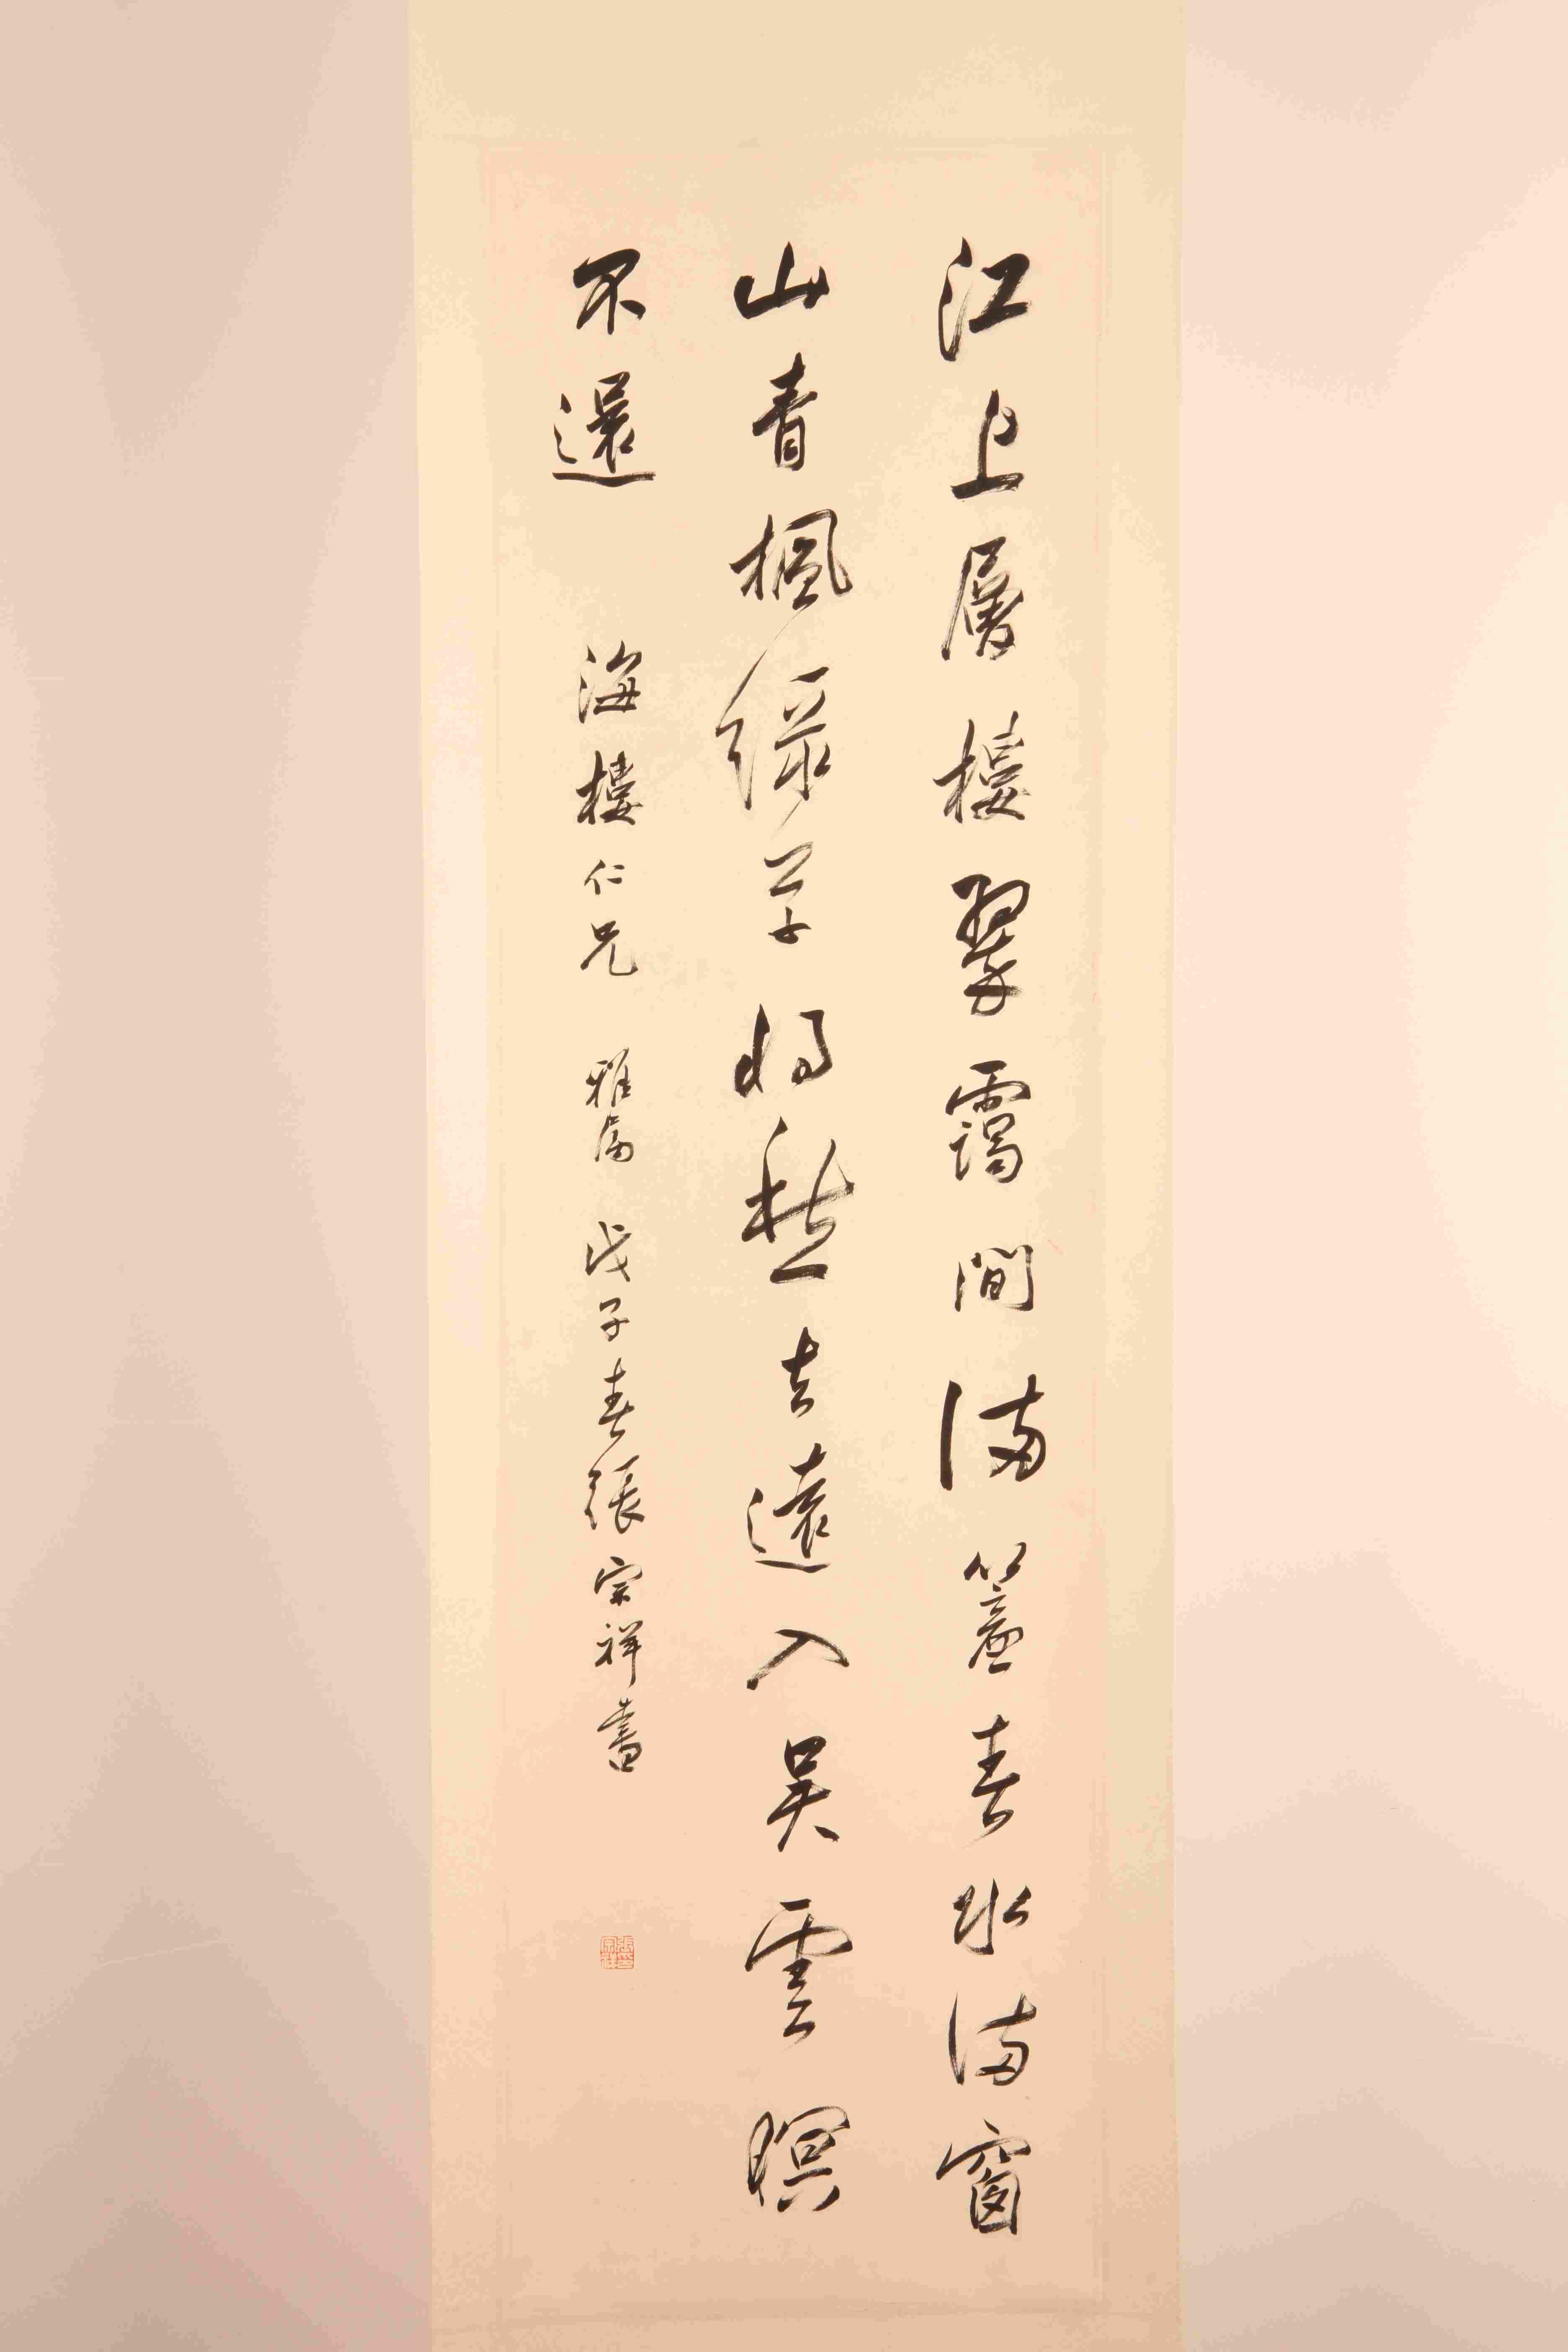 江上層樓翠靄間滿簾春水滿窗
山青楓綠草將愁去遠入吳雲暝
不還 海樓仁兄 雅屬 戊子春張宗祥書
張宗祥印